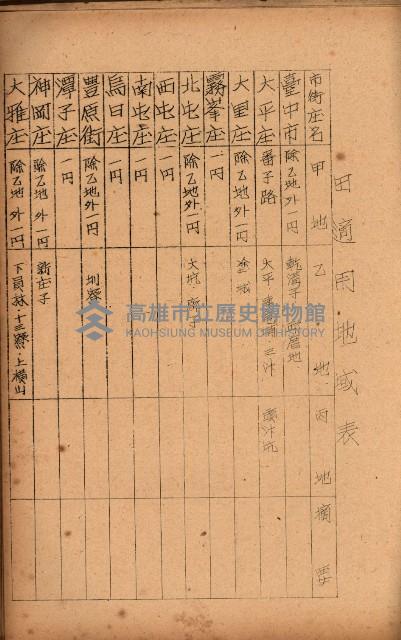 田適用地域表
市街庄名 甲地 乙地 丙地 摘要
臺中市 除乙地外一円 乾溝子 西屯地
大平庄 番子路 大平 三汴 頭汴坑
大里庄 除乙地外一円 塗城
霧峯庄 一円
北屯庄 除乙地外一円 大坑
西屯庄 一円
南屯庄 一円
烏日庄 一円
豊原街 除乙地外一円 圳寮
潭子庄 一円
神岡庄 除乙地外一円 新庄子
大雅庄 除乙地外一円 下員林 十三寮 上横山
高雄市立歷史博物館
KAOHSIUNG MUSEUM OF HISTORY